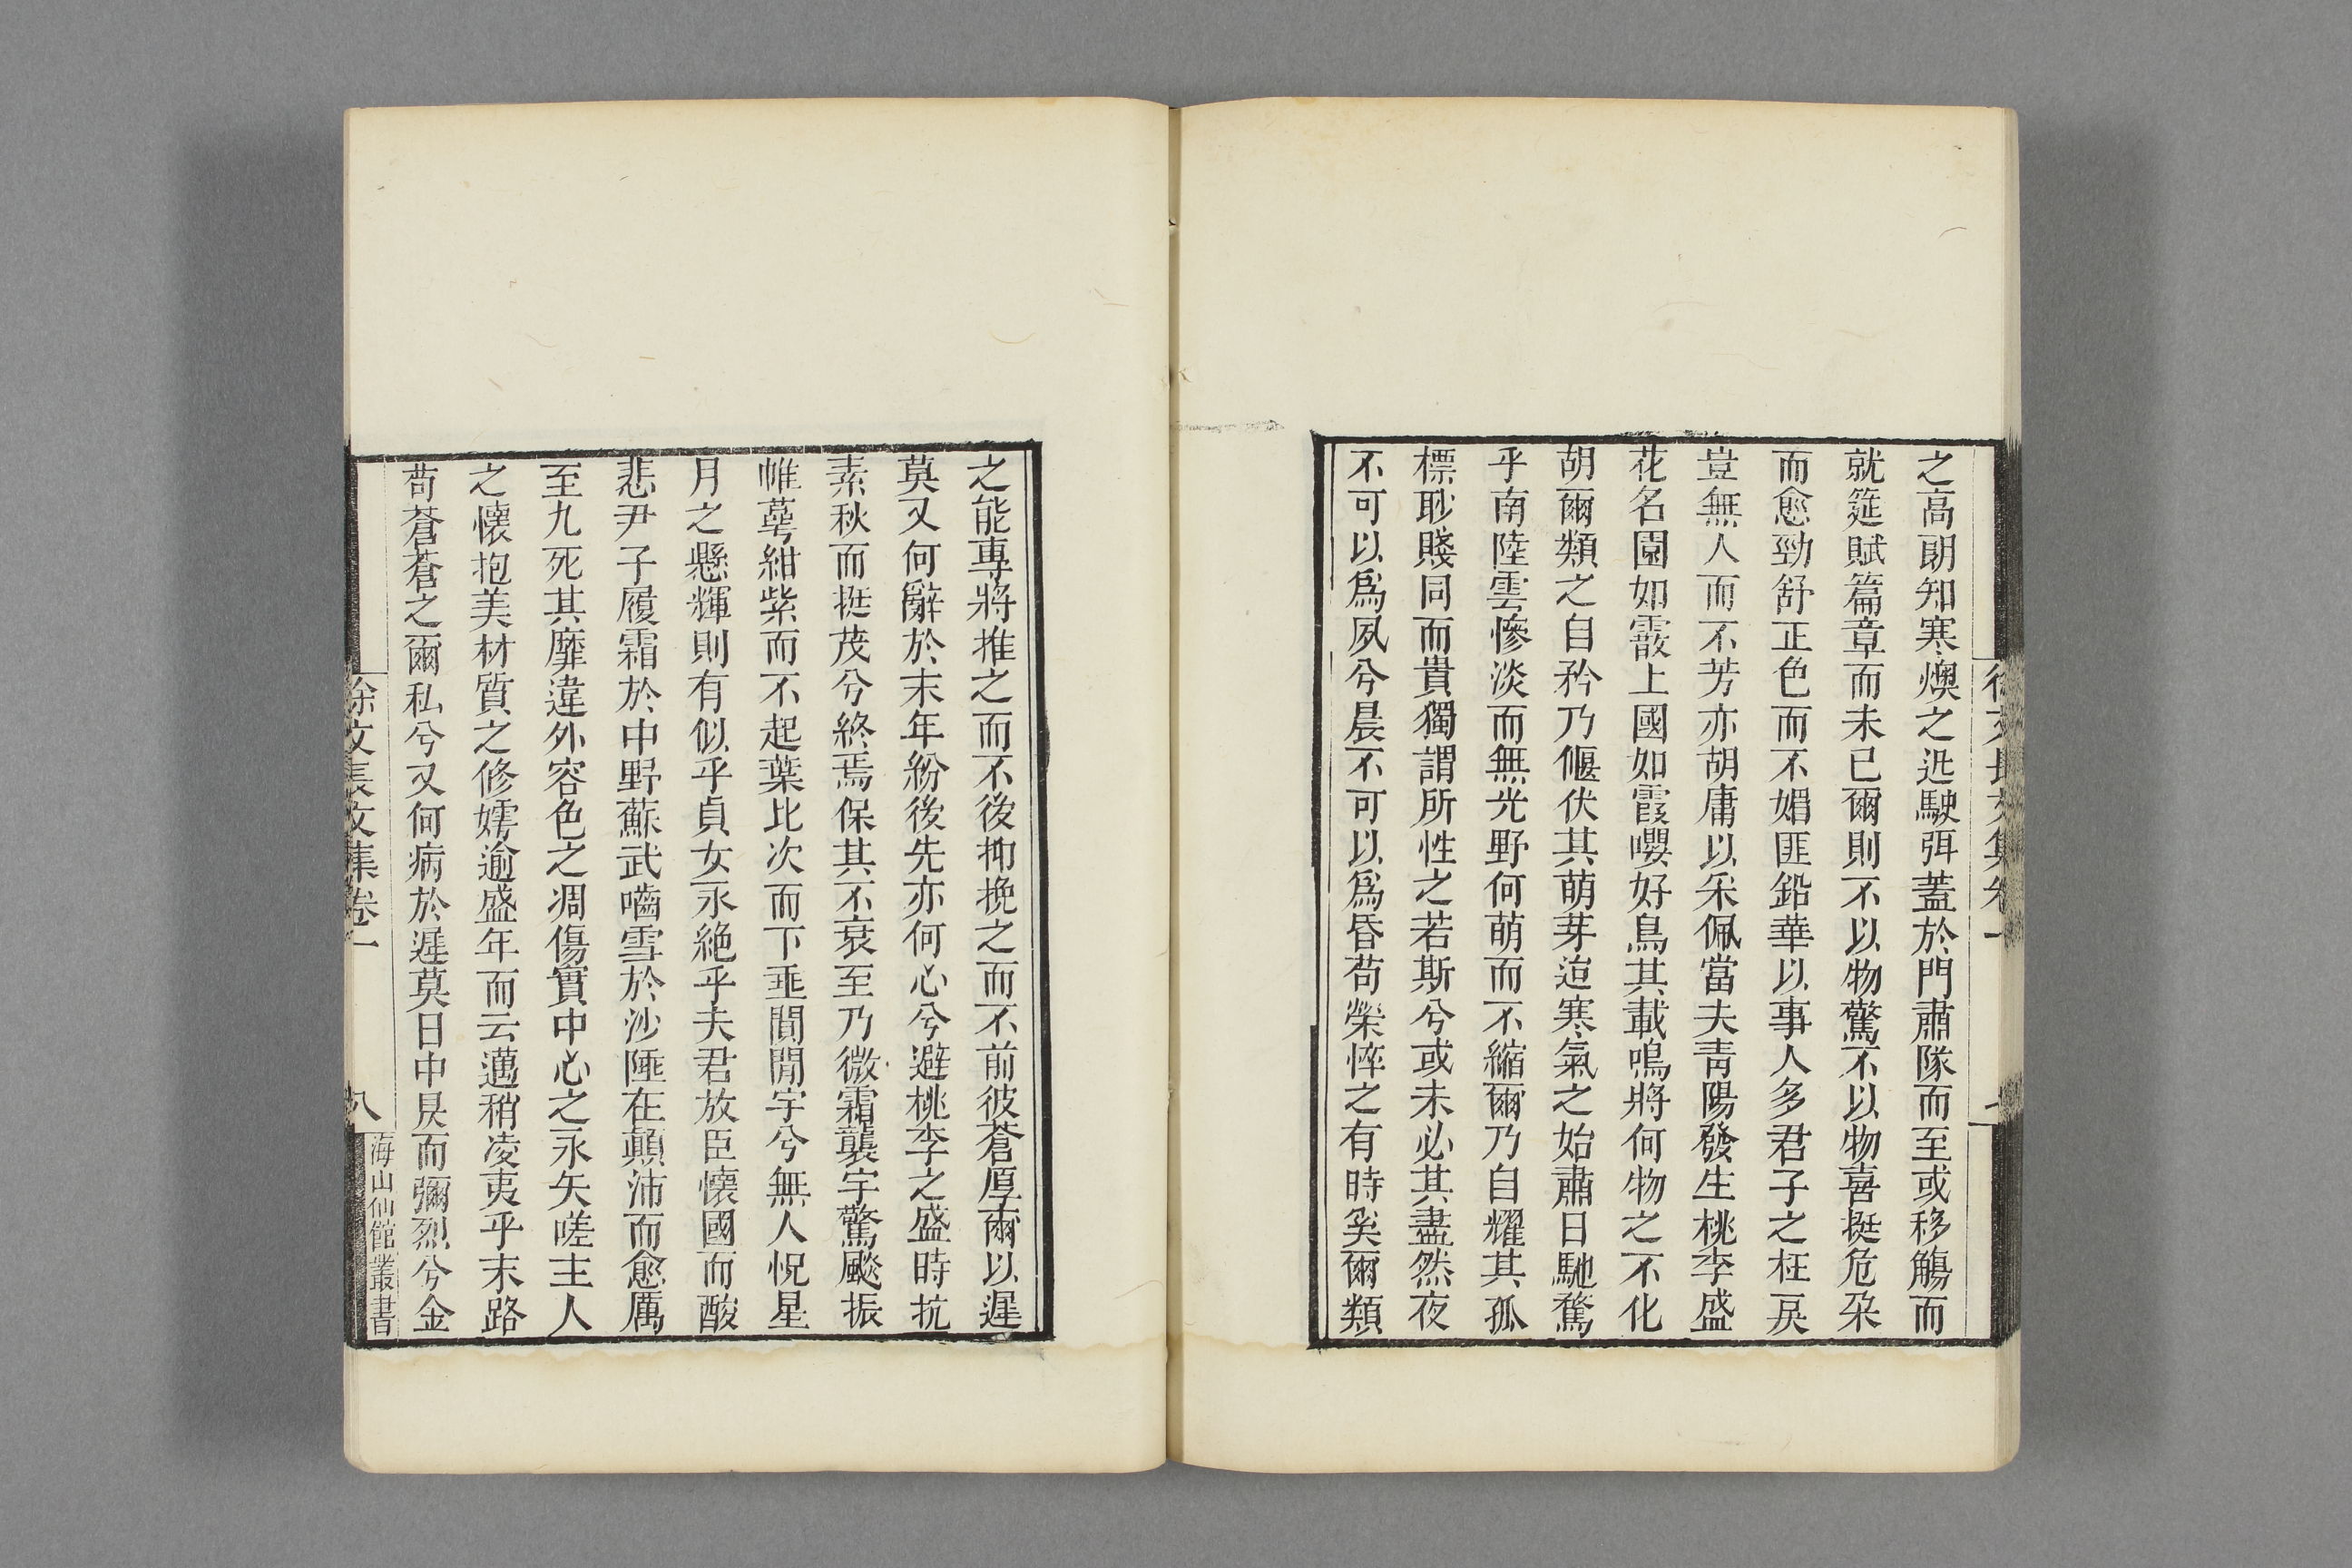 之高朗知寒燠之迯駛弭蓋於門肅隊而至或移觴而
就筵賦篇章而未已爾則不以物驚不以物喜挺危朶
而愈勁舒正色而不媚匪鉛華以事人多君子之枉戾
豈無人而不芳亦胡庸以采佩當夫靑陽發生桃李盛
花名園如霰上國如霞嚶好鳥其載鳴將何物之不化
胡爾類之自矜乃偃伏其萌芽迨寒氣之始肅日馳騖
乎南陸雲慘淡而無光野何萌而不縮爾乃自耀其孤
標耿賤同而貴獨謂所性之若斯兮或未必其盡然夜
不可以爲夙兮晨不可以爲昏苟榮悴之有時奚爾類
徐文長文集卷一
七
之能專將推之而不後抑挽之而不前彼蒼厚爾以遲
莫又何辭於末年紛後先亦何心兮避桃李之盛時抗
素秋而挺茂兮終焉保其不衰至乃微霜襲宇驚飈振
帷蕚紺紫而不起葉比次而下垂閴閒宇兮無人怳星
月之懸輝則有似乎貞女永絶乎夫君放臣懷國而酸
悲尹子履霜於中野蘇武嚙雪於沙陲在顚沛而愈厲
至九死其靡違外容色之凋傷實中心之永矢嗟主人
之懷抱美材質之修嫮逾盛年而云邁稍凌夷乎末路
苟蒼蒼之爾私兮又何病於遲莫日中昃而彌烈兮金
徐文長文集卷一
八
海山仙館叢書